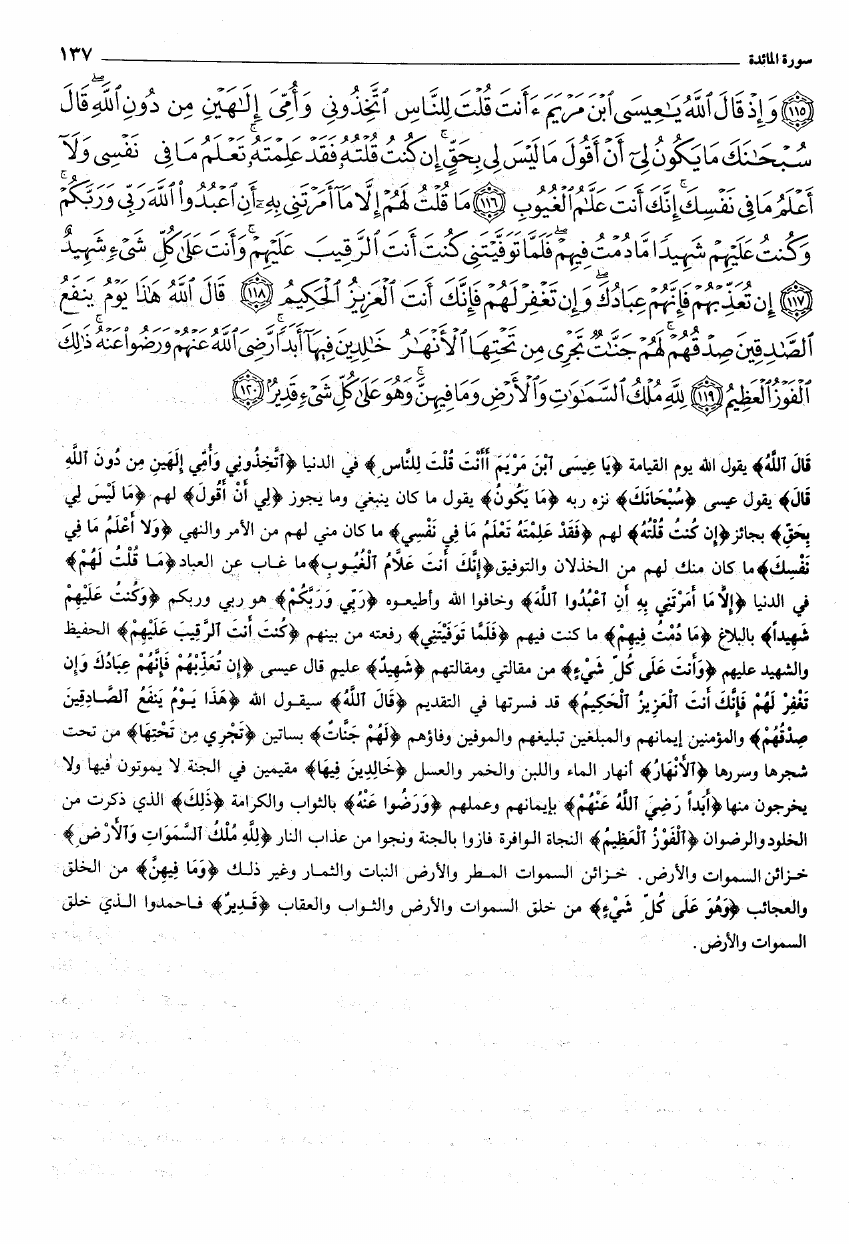 سورة المائدة ١٣٧
﴿١١٥﴾ وَإِذْ قَالَ ٱللَّهُ يَٰعِيسَى ٱبْنَ مَرْيَمَ ءَأَنتَ قُلْتَ لِلنَّاسِ ٱتَّخِذُونِى وَأُمِّىَ إِلَٰهَيْنِ مِن دُونِ ٱللَّهِۖ قَالَ
سُبْحَٰنَكَ مَا يَكُونُ لِىٓ أَنْ أَقُولَ مَا لَيْسَ لِى بِحَقٍّۚ إِن كُنتُ قُلْتُهُۥ فَقَدْ عَلِمْتَهُۥۚ تَعْلَمُ مَا فِى نَفْسِى وَلَآ
أَعْلَمُ مَا فِى نَفْسِكَۚ إِنَّكَ أَنتَ عَلَّٰمُ ٱلْغُيُوبِ ﴿١١٦﴾ مَا قُلْتُ لَهُمْ إِلَّا مَآ أَمَرْتَنِى بِهِۦٓ أَنِ ٱعْبُدُوا۟ ٱللَّهَ رَبِّى وَرَبَّكُمْۚ
وَكُنتُ عَلَيْهِمْ شَهِيدًا مَّا دُمْتُ فِيهِمْۖ فَلَمَّا تَوَفَّيْتَنِى كُنتَ أَنتَ ٱلرَّقِيبَ عَلَيْهِمْۚ وَأَنتَ عَلَىٰ كُلِّ شَىْءٍ شَهِيدٌ
﴿١١٧﴾ إِن تُعَذِّبْهُمْ فَإِنَّهُمْ عِبَادُكَۖ وَإِن تَغْفِرْ لَهُمْ فَإِنَّكَ أَنتَ ٱلْعَزِيزُ ٱلْحَكِيمُ ﴿١١٨﴾ قَالَ ٱللَّهُ هَٰذَا يَوْمُ يَنفَعُ
ٱلصَّٰدِقِينَ صِدْقُهُمْۚ لَهُمْ جَنَّٰتٌ تَجْرِى مِن تَحْتِهَا ٱلْأَنْهَٰرُ خَٰلِدِينَ فِيهَآ أَبَدًاۚ رَّضِىَ ٱللَّهُ عَنْهُمْ وَرَضُوا۟ عَنْهُۚ ذَٰلِكَ
ٱلْفَوْزُ ٱلْعَظِيمُ ﴿١١٩﴾ لِلَّهِ مُلْكُ ٱلسَّمَٰوَٰتِ وَٱلْأَرْضِ وَمَا فِيهِنَّۚ وَهُوَ عَلَىٰ كُلِّ شَىْءٍ قَدِيرٌۢ ﴿١٢٠﴾
قَالَ ٱللَّهُ﴾ يقول الله يوم القيامة ﴿يَا عِيسَى ٱبْنَ مَرْيَمَ أَأَنْتَ قُلْتَ لِلنَّاسِ﴾ في الدنيا ﴿ٱتَّخِذُونِي وَأُمِّيَ إِلَهَيْنِ مِن دُونِ ٱللَّهِ
قَالَ﴾ يقول عيسى ﴿سُبْحَانَكَ﴾ نزه ربه ﴿مَا يَكُونُ﴾ يقول ما كان ينبغي وما يجوز ﴿لِي أَنْ أَقُولَ﴾ لهم ﴿مَا لَيْسَ لِي
بِحَقٍّ﴾ بجائز ﴿إِن كُنتُ قُلْتُهُ﴾ لهم ﴿فَقَدْ عَلِمْتَهُ تَعْلَمُ مَا فِي نَفْسِي﴾ ما كان مني لهم من الأمر والنهي ﴿وَلَا أَعْلَمُ مَا فِي
نَفْسِكَ﴾ ما كان منك لهم من الخذلان والتوفيق ﴿إِنَّكَ أَنتَ عَلَّامُ ٱلْغُيُوبِ﴾ ما غاب عن العباد ﴿مَا قُلْتُ لَهُمْ﴾
في الدنيا ﴿إِلَّا مَا أَمَرْتَنِي بِهِ أَنِ ٱعْبُدُوا ٱللَّهَ﴾ وخافوا الله وأطيعوه ﴿رَبِّي وَرَبَّكُمْ﴾ هو ربي وربكم ﴿وَكُنتُ عَلَيْهِمْ
شَهِيداً﴾ بالبلاغ ﴿مَا دُمْتُ فِيهِمْ﴾ ما كنت فيهم ﴿فَلَمَّا تَوَفَّيْتَنِي﴾ رفعته من بينهم ﴿كُنتَ أَنتَ ٱلرَّقِيبَ عَلَيْهِمْ﴾ الحفيظ
والشهيد عليهم ﴿وَأَنتَ عَلَى كُلِّ شَيْءٍ﴾ من مقالتي ومقالتهم ﴿شَهِيدٌ﴾ عليم قال عيسى ﴿إِن تُعَذِّبْهُمْ فَإِنَّهُمْ عِبَادُكَ وَإِن
تَغْفِرْ لَهُمْ فَإِنَّكَ أَنتَ ٱلْعَزِيزُ ٱلْحَكِيمُ﴾ قد فسرتها في التقديم ﴿قَالَ ٱللَّهُ﴾ سيقول الله ﴿هَذَا يَوْمُ يَنفَعُ ٱلصَّادِقِينَ
صِدْقُهُمْ﴾ والمؤمنين إيمانهم والمبلغين تبليغهم والموفين وفاؤهم ﴿لَهُمْ جَنَّاتٌ﴾ بساتين ﴿تَجْرِي مِن تَحْتِهَا﴾ من تحت
شجرها وسررها ﴿ٱلْأَنْهَارُ﴾ أنهار الماء واللبن والخمر والعسل ﴿خَالِدِينَ فِيهَا﴾ مقيمين في الجنة لا يموتون فيها ولا
يخرجون منها ﴿أَبَداً رَضِيَ ٱللَّهُ عَنْهُمْ﴾ بإيمانهم وعملهم ﴿وَرَضُوا عَنْهُ﴾ بالثواب والكرامة ﴿ذَلِكَ﴾ الذي ذكرت من
الخلود والرضوان ﴿ٱلْفَوْزُ ٱلْعَظِيمُ﴾ النجاة الوافرة فازوا بالجنة ونجوا من عذاب النار ﴿لِلَّهِ مُلْكُ ٱلسَّمَوَاتِ وَٱلْأَرْضِ﴾
خزائن السموات والأرض. خزائن السموات المطر والأرض النبات والثمار وغير ذلك ﴿وَمَا فِيهِنَّ﴾ من الخلق
والعجائب ﴿وَهُوَ عَلَى كُلِّ شَيْءٍ﴾ من خلق السموات والأرض والثواب والعقاب ﴿قَدِيرٌ﴾ فاحمدوا الذي خلق
السموات والأرض.